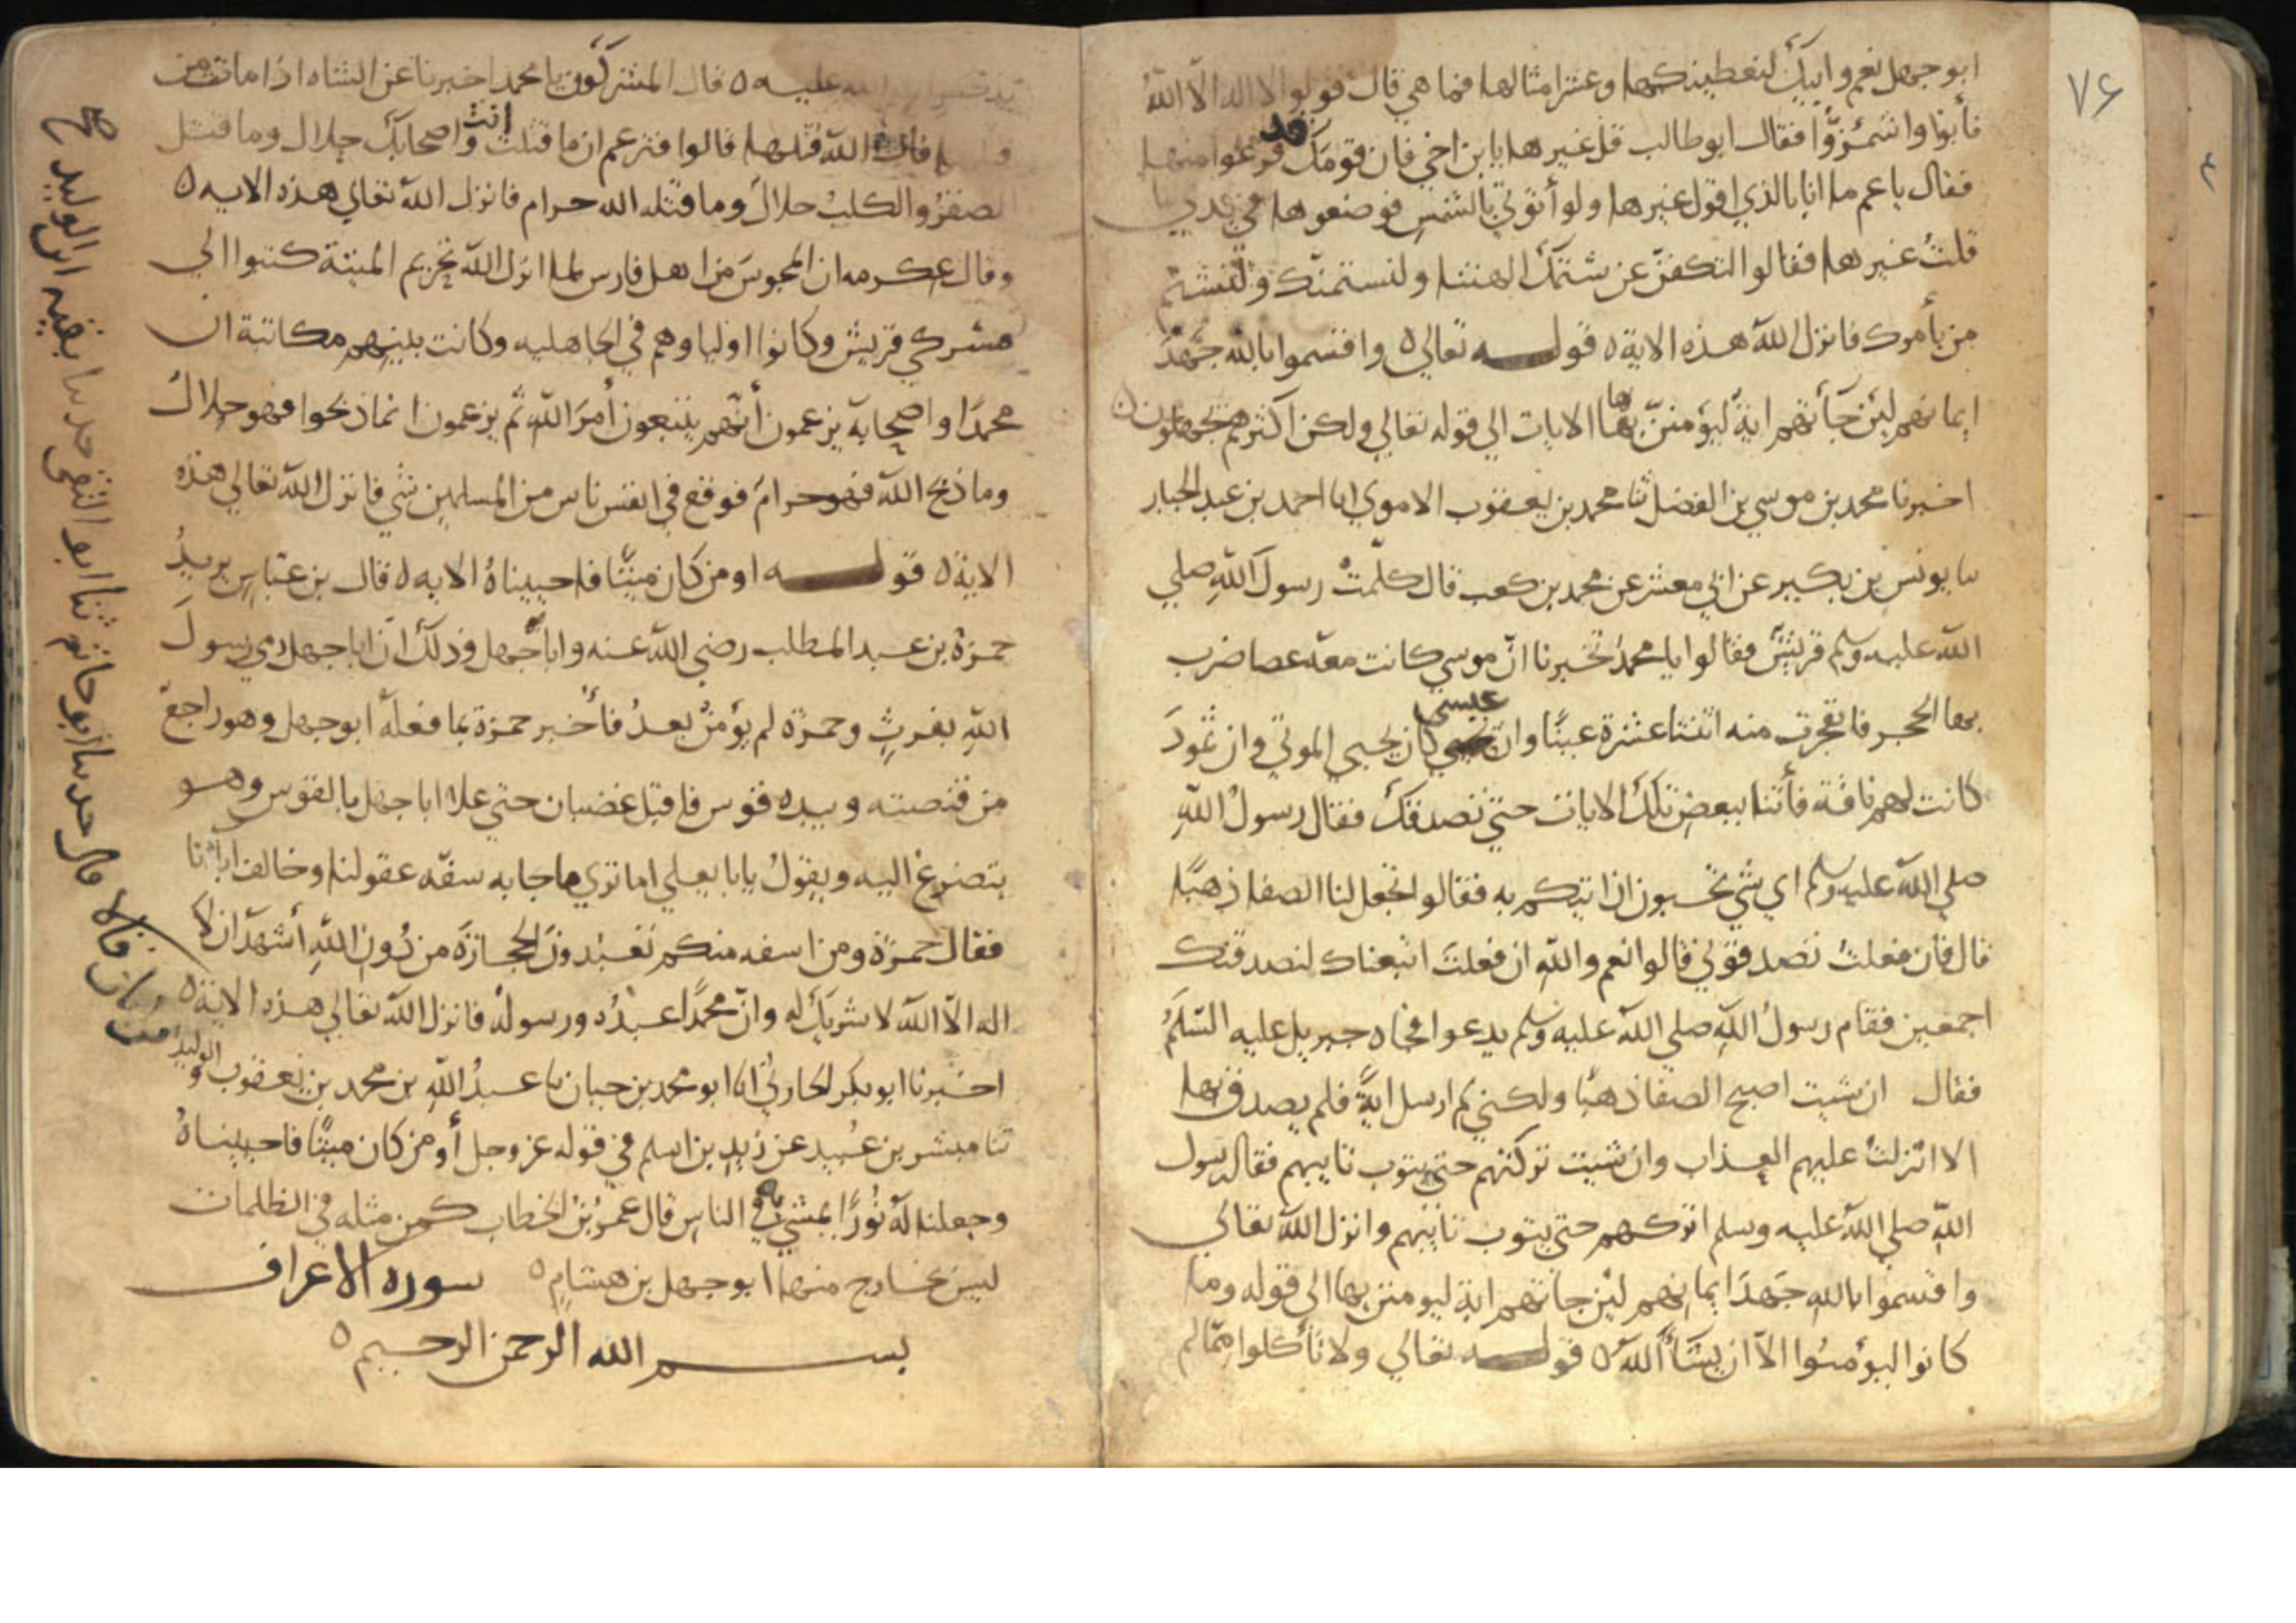 ٧٦
ابو جهل نعم وابيك لنعطينكها وعشر امثالها فما هي قال قولوا لا اله الا الله
فأبوا واشمئزّوا فقال ابو طالب قل غيرها يابن اخي فان قومك قد فزعوا منها
فقال يا عم ما انا بالذي اقول غيرها ولو أتوني بالشمس فوضعوها في يدي ما
قلت غيرها فقالوا لتكفنّ عن شتمك الهتنا ولنستمنك ولنشتم
من يأمرك فانزل الله هذه الاية ٥ قولـــه تعالى ٥ واقسموا بالله جَهْدَ
ايمانهم لئن جَآءتهم ايةٌ ليؤمننّ بها الايات الي قوله تعالي ولكن اكثرهم يجهلون ٥
اخبرنا محمد بن موسي بن الفضل ثنا محمد بن يعقوب الاموي انا احمد بن عبد الجبار
نا يونس بن بكير عن ابي معشر عن محمد بن كعب قال كلّمتْ رسولَ اللهِ صلي
الله عليه وسلم قريشٌ فقالوا يا محمدُ تخبرنا انّ موسي كانت معه عصا ضرب
بها الحجر فانفجرت منه اثنتا عشرة عينًا وان عيسى كان يحيي الموتي وان ثمودَ
كانت لهم ناقة فأتنا ببعض تلك الايات حتي نصدقك فقال رسولُ اللهِ
صلي الله عليه وسلم اي شي تحبون ان اتيكم به فقالوا تجعل لنا الصفا ذهبًا
قال فان فعلتُ تصدقوني قالوا نعم والله ان فعلتَ اتبعناك لنصدقنك
اجمعين فقام رسولُ اللهِ صلي الله عليه وسلم يدعوا فجاه جبريل عليه السّلَمُ
فقال ان شيت اصبح الصفا ذهبًا ولكني لم ارسل ايةً فلم يصدق بها
الا انزلتُ عليهم العذاب وان شيت تركتهم حتي يتوب تايبهم فقال رسول
الله صلي الله عليه وسلم اتركهم حتي يتوب تايبهم وانزل الله تعالي
واقسموا بالله جَهدَ ايمانهم لئن جاتهم اية ليومنن بها الي قوله وما
كانوا ليؤمنُوا الاّ ان يشآء اللهُ ٥ قولـــه تعالي ولا تأكلوا ممّا لم
الله عليه ٥ قال المشركون يا محمد اخبرنا عن الشاه اذا ماتت من
قتلها قال الله قتلها قالوا فتزعم ان ما قتلت أنت واصحابك حلال وما قتل
الصقرُ والكلبُ حلالٌ وما قتله الله حرام فانزل الله تعالي هذه الايه ٥
وقال عكرمه ان المجوسَ من اهل فارس لما انزل الله تحريم الميتة كتبوا الي
مشركي قريش وكانوا اولياوهم في الجاهليه وكانت بينهم مكاتبة ان
محمدًا واصحابه يزعمون أنّهم يتبعون أمرَ اللهِ ثم يزعمون انما ذبحوا فهو حلالٌ
وما ذبح الله فهو حرامٌ فوقع في انفس ناس من المسلمين شي فانزل الله تعالي هذه
الاية ٥ قولـــه اومن كان ميتًا فاحييناهُ الايه ٥ قال بن عبّاس يريدُ
حمزة بن عبد المطلب رضي الله عنه وابا جهل وذلك انّ ابا جهل رمي رسولَ
اللهِ بفرثٍ وحمزة لم يؤمنْ بعدُ فأخبر حمزة بما فعله ابو جهل وهو راجعٌ
من قنصته وبيده قوس فاقبل غضبان حتي علا ابا جهل بالقوس وهو
يتضرعُ اليه ويقولُ يابا يعلي اما تري ما جا به سفّه عقولنا وخالف اباءنا
فقال حمزة ومن اسفه منكم تعبدون الحجارَةَ من دُونِ اللهِ أشهدُ ان لا
اله الاّ الله لا شريك له وانّ محمدًا عبدُه ورسولُه فانزل الله تعالي هذه الاية ٥
اخبرنا ابو بكر الحارثي انا ابو محمد بن حيان نا عبدُ اللهِ بن محمد بن يعقوب والوليد
ثنا مبشر بن عبيد عن زيد بن اسلم في قوله عز وجل أومن كان ميتًا فاحييناهُ
وجعلنا له نُورًا يمشي به في الناس قال عمرُ بن الخطاب كمن مثله في الظلمات
ليس بخارج منها ابو جهل بن هشام ٥ سوره الاعراف
بســـم الله الرحمن الرحيم ٥
قالا نا ابو حاتم ثنا ابو التقى حدثنا بقيه ابن الوليد صح